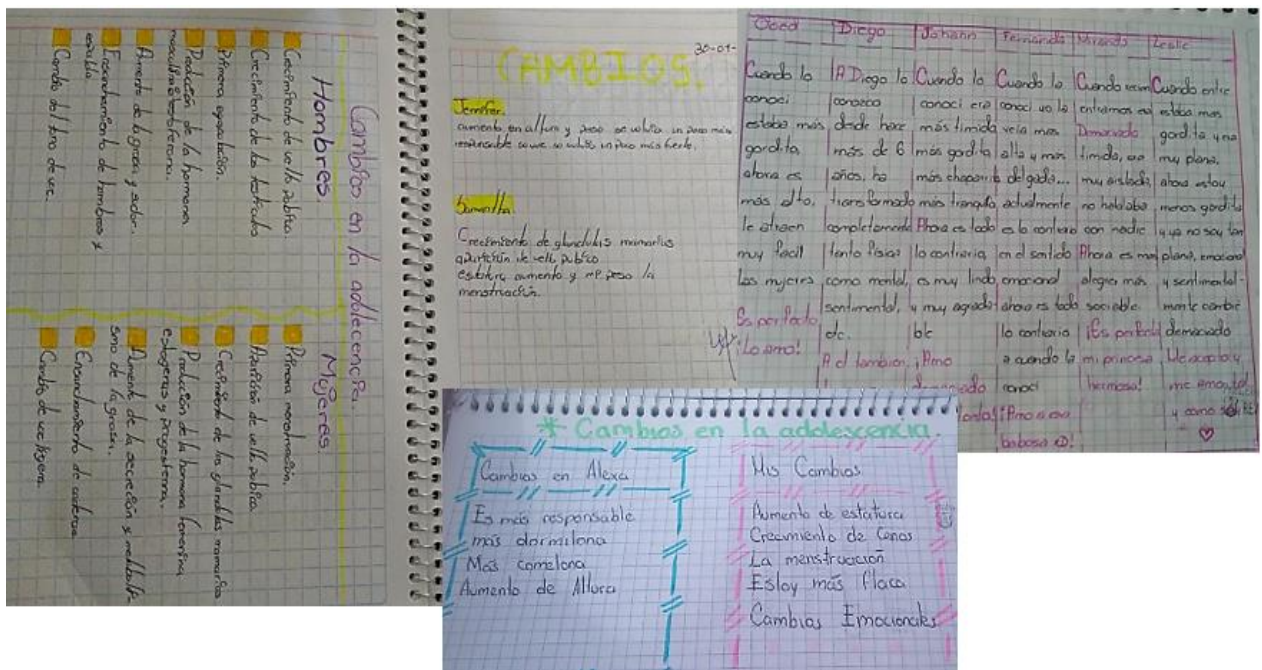 Cambios en la adolecencia.
Hombres.
Crecimiento de vello pubico.
Crecimiento de los testiculos
Primera eyaculación.
Producción de la hormona
masculina testosterona.
Aumento de la grasa y sudor.
Ensanchamiento de hombros y
espalda.
Cambio del tono de voz.
Mujeres
Primera menstruación.
Aparición de vello pubico.
Crecimiento de las glandulas mamarias
Producción de la hormona femenina
estrogenos y progesterona.
Aumento de la secreción y metaboli-
smo de la grasa.
Ensanchamiento de caderas
Cambio de voz ligera.
30-01-
CAMBIOS.
Jennifer.
aumento en altura y peso se volvio un poco más
responsable se volvio un poco más fuerte.
Samantha.
Crecimiento de glandulas mamarias
aparición de vello pubico
estatura aumento y mi peso la
menstruación.
Diego
A Diego lo
conozco
desde hace
más de 6
años, ha
transformado
completamente
tanto física
como mental,
sentimental,
etc.
A el tambien
Johann
Cuando lo
conoci era
más timido
más gordito
más chaparrito
más tranquilo
Ahora es todo
lo contrario,
es muy lindo,
y muy agrada-
ble
¡Amo
demasiado
Cuando lo
conoci
estaba más
gordito,
ahora es
más alto,
le atraen
muy facil
las mujeres
Es perfecto
¡Lo amo!
Fernanda
Cuando la
conoci yo la
veia mas
alta y mas
delgada...
actualmente
es lo contrario
en el sentido
emocional
ahora es todo
lo contrario
a cuando la
conoci
¡Amo a esa
babosa
Miranda
Cuando recien
entramos era
Demaciado
timida, era
muy aislada,
no hablaba
con nadie
Ahora es mas
alegre, más
sociable.
¡Es perfecta
mi princesa
hermosa!
Leslie
Cuando entre
estaba mas
gordita y era
muy plana,
ahora estoy
menos gordita
y ya no soy tan
plana, emocional
y sentimental-
mente cambie
demaciado
Me acepto y
me amo, tal
y como soy
* Cambios en la adolescencia.
Cambios en Alexa
Es más responsable
más dormilona
Más comelona
Aumento de Altura
Mis Cambios
Aumento de estatura
Crecimiento de Senos
La menstruación
Estoy más flaca
Cambios Emocionales